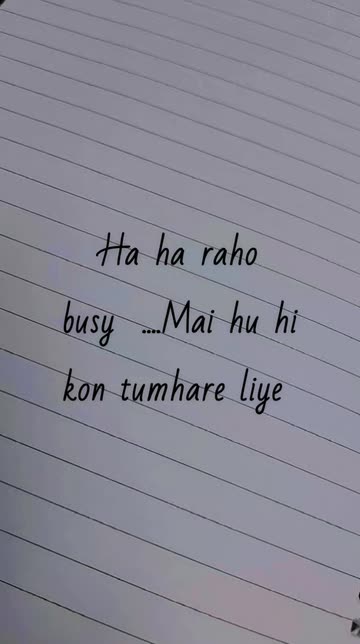 Ha ha raho
busy ....Mai hu hi
kon tumhare liye